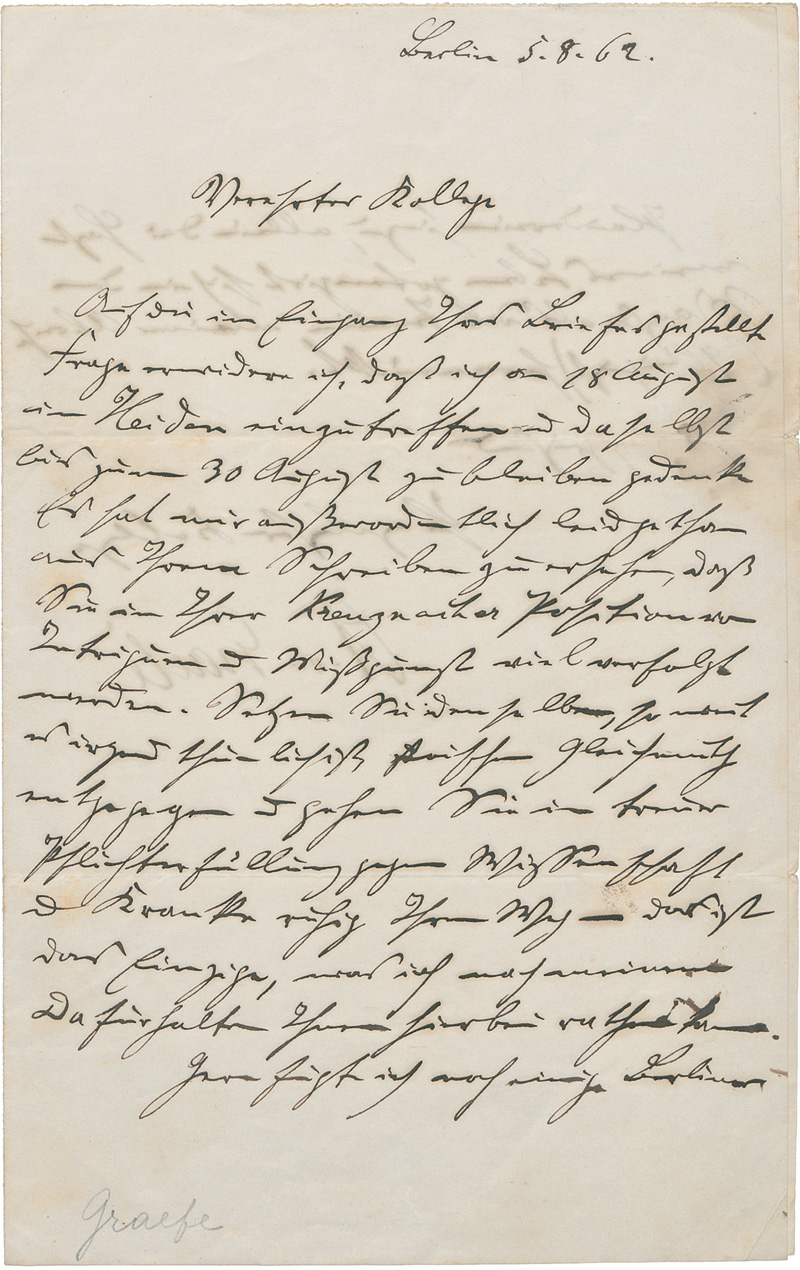 Berlin 5.8.62.
Verehrter Kollege
Auf die im Eingang Ihres Briefes gestellte
Frage erwidere ich, daß ich am 18 August
in Heiden einzutreffen u daselbst
bis zum 30 August zu bleiben gedenke
Es hat mir außerordentlich leid gethan
aus Ihrem Schreiben zu ersehen, daß
Sie in Ihrer Kreuznacher Position von
Intriguen u Mißgunst viel verfolgt
werden. Setzen Sie denselben, so weit
es irgend thunlich ist, stoischen Gleichmuth
entgegen u gehen Sie in treuer
Pflichterfüllung gegen Wissenschaft
u Kranke ruhig Ihren Weg — das ist
das Einzige, was ich nach meinem
Dafürhalten Ihnen hierbei rathen kann.
Gern fügte ich noch einige Berliner
Graefe